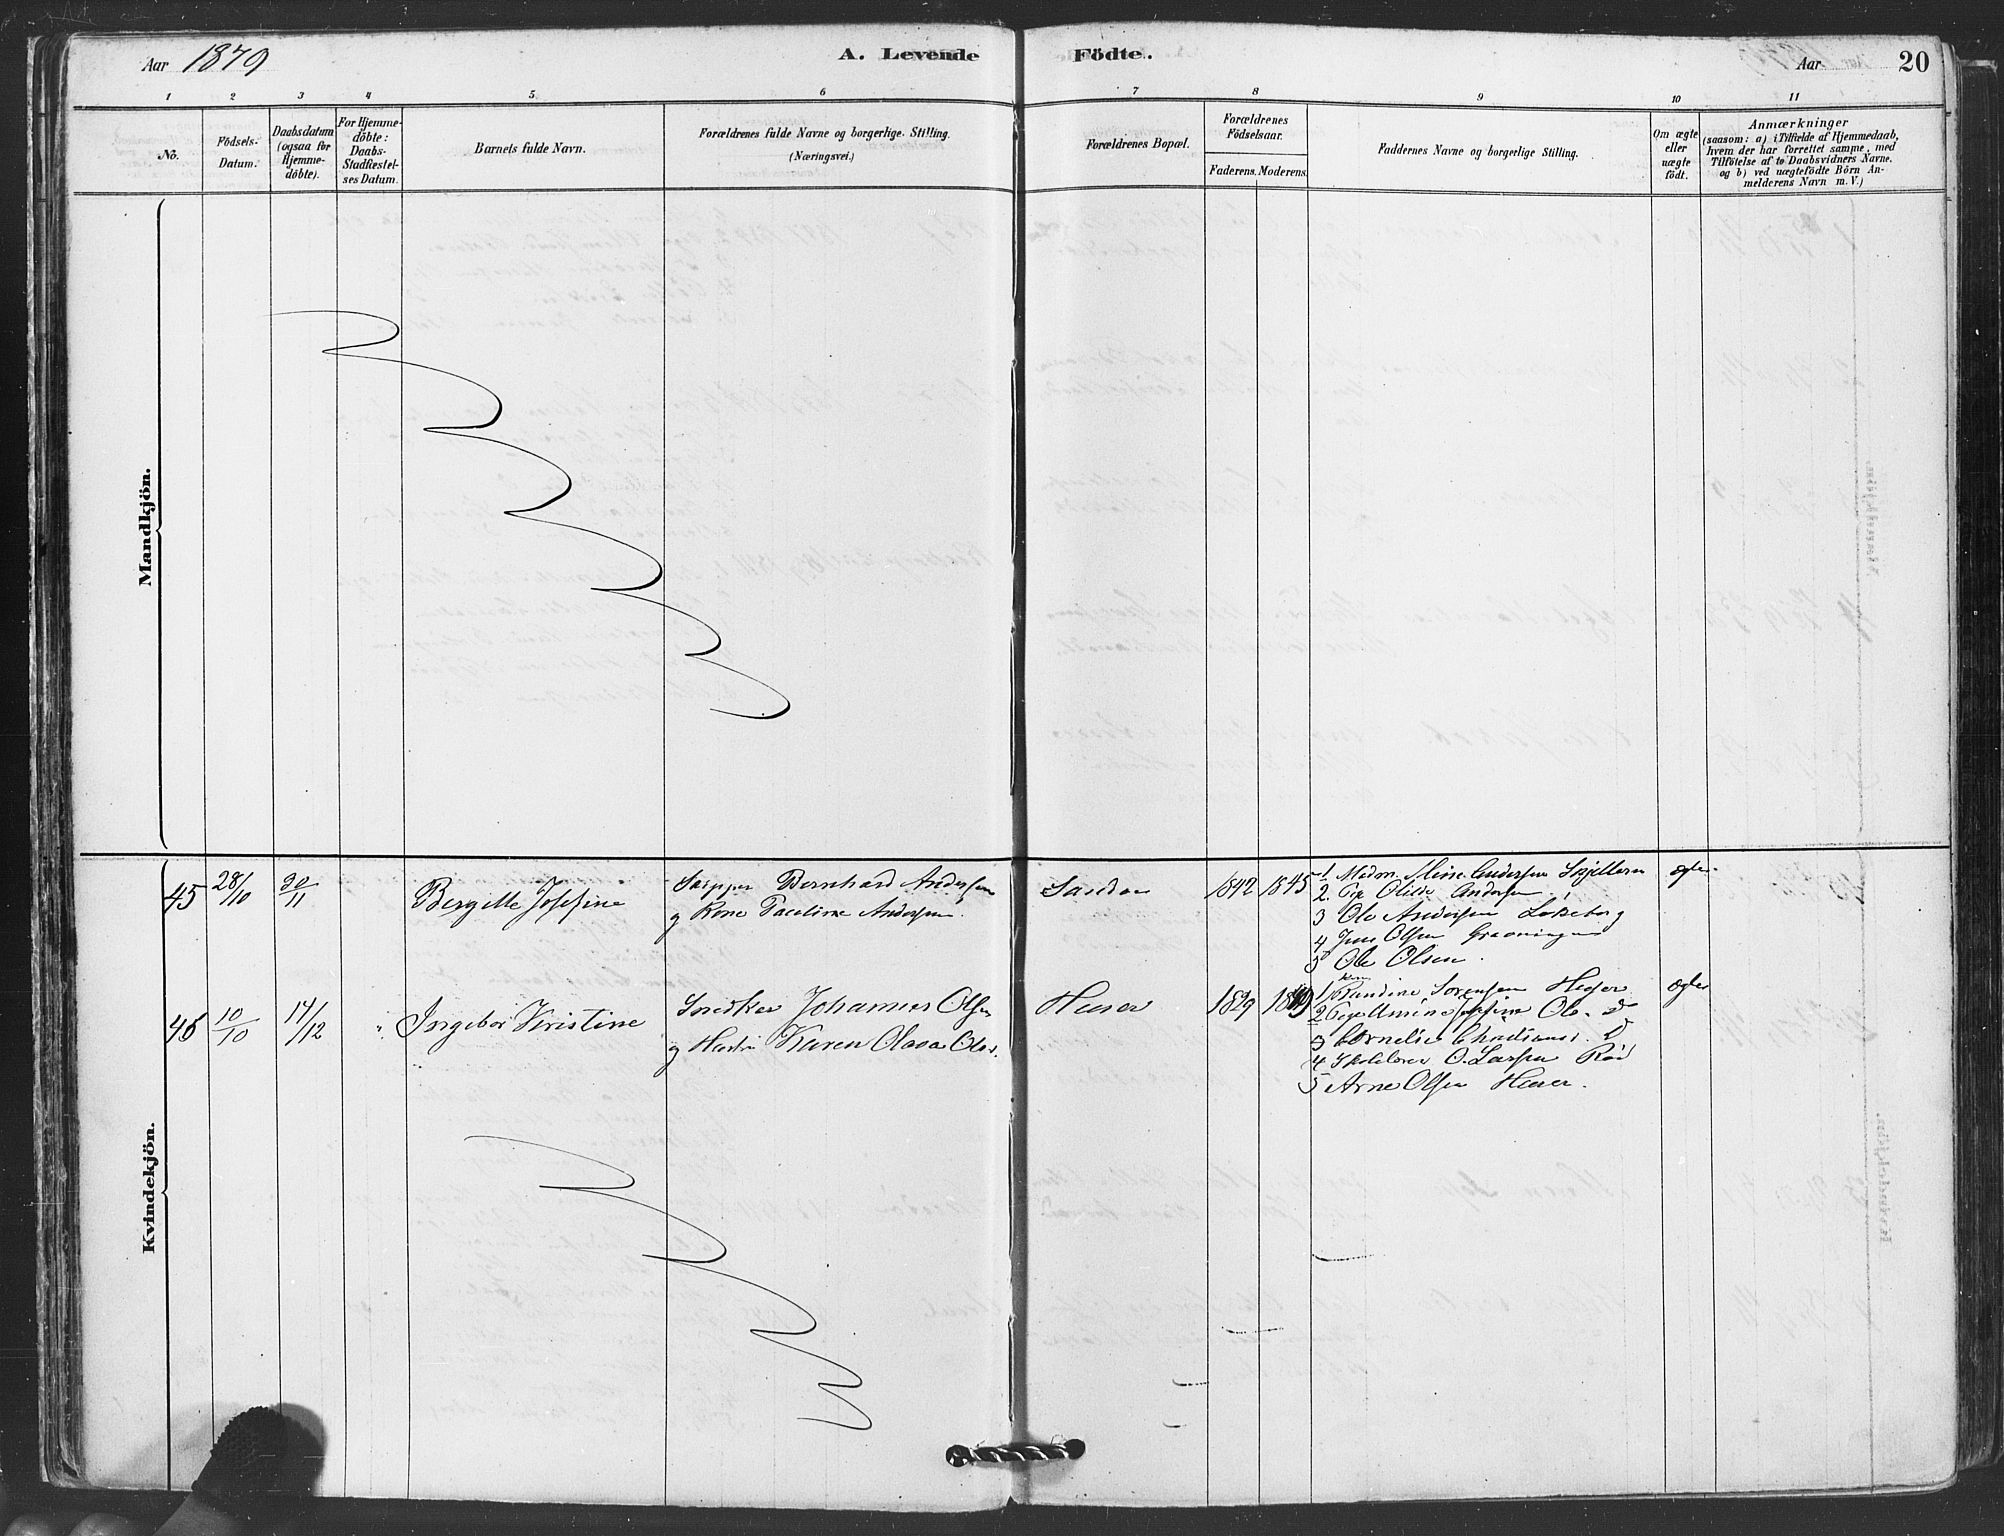 Aar 1879
A. Levende Födte.
Aar 20
1 2 3 4 5 6 7 8 9 10 11
No.
Födsels-
Datum.
Daabsdatum
(ogsaa for
Hjemme-
döbte).
For Hjemme-
döbte:
Daabs-
Stadfæstel-
ses Datum.
Barnets fulde Navn.
Forældrenes fulde Navne og borgerlige Stilling.
(Næringsvei.)
Forældrenes Bopæl.
Forældrenes
Födselsaar.
Faderens. Moderens.
Faddernes Navne og borgerlige Stilling.
Om ægte
eller
uægte
födt.
Anmærkninger
(saasom: a) i Tilfælde af Hjemmedaab,
hvem der har forrettet samme, med
Tilföielse af to Daabsvidners Navne.
og b) ved uægtefödte Börn An-
melderens Navn m. V.)
Mandkjön.
Kvindekjön.
45 28/10 30/11 Bergitte Josefine
Skipper Bernhard Andersen
g Kone Pauline Andersen
Sandøa 1842 1845
1. Madm. Mine Andersen Skjelleren
2. Pge Olise Andersen
3 Ole Andersen Lokeborg
4 Jens Olsen Grønningen
5 Ole Olsen.
ægte
46 10/10 14/12 " Ingebor Kristine
Snedker Johannes Olsen
g Hustru Karen Olava Ols.
Hesør 1829
1 Kone Randine Sørensen Hesør
2 Pge Amine Josefine Ols. D
3 Cornelie Christians. D
4 Skolelærer O. Larsen Rød
5 Arne Olsen Hesør.
ægte